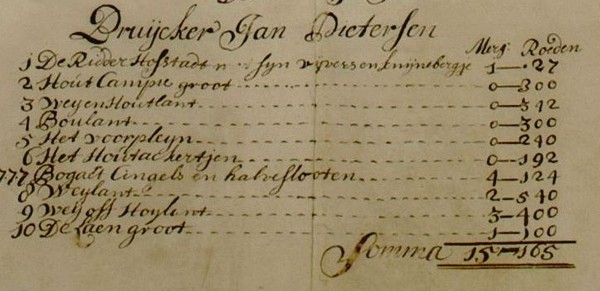 Druijcker Jan Pietersen
Merg: Roeden
1 De Ridder Hofstadt n syn vyversen knijnebergje 1—27
2 Hout Campie groot 0—300
3 Weyen Houtlant 0—342
4 Boulant 0—300
5 Het voorpleyn 0—240
6 Het Houtackertjen 0—192
777 Bogaet Cingels en halve slooten 4—124
8 Weylant 2—540
9 Weij off Hoylent 3—400
10 De Laen groot 1—100
Somma 15—165